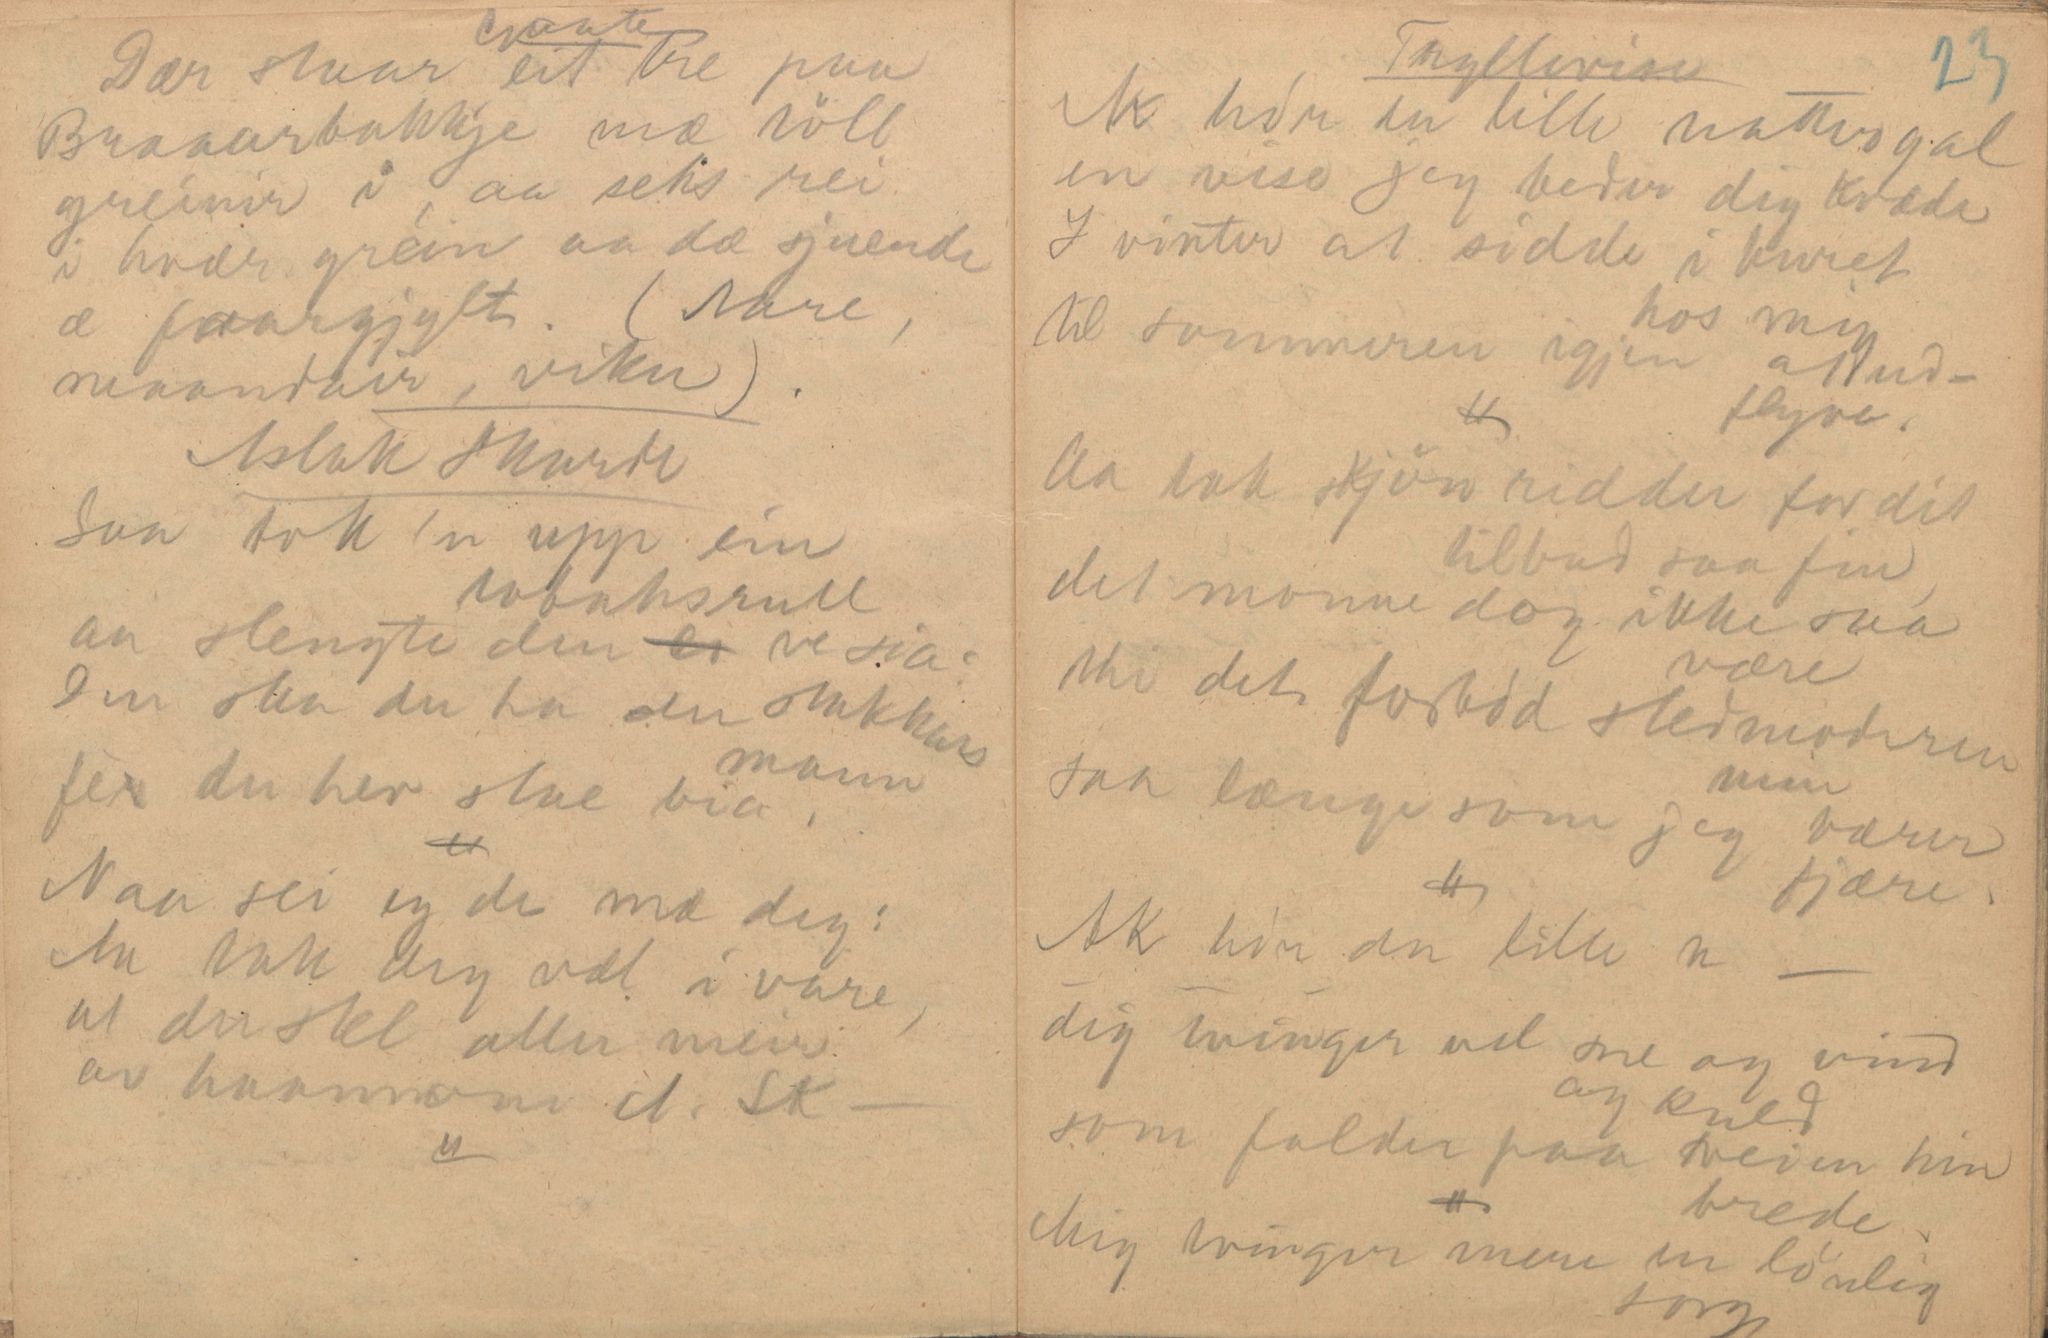 Gaate
Dær staar eit tre paa
Braaurbakkje mæ töll
greinir i, aa seks rei
i hvær grein aa dæ sjuende
æ faargjylt. (Aare,
maandair, viku).
Aslak Skarde
Saa tok 'n upp ein
tobaksrull
aa slengte den ve sia:
Den ska du ha du stakkars
mann
fer du her stae bia.
"
Naa sei eg de mæ deg:
Aa tak deg væl i vare,
at du stel aller meir
av haannom A. Sk —
"
23
Tryllevise
Ak hör du lille nattergal
en vise jeg beder dig kvæde
I vinter at sidde i buret
hos mig
til sommeren igjen at ud-
flyve.
"
Aa tak skjön ridder for dit
tilbud saa fin,
det monne dog ikke saa
være
thi det forböd stedmoderen
min
saa længe som jeg bærer
fjære.
"
Ak hör du lille n —
— — —
dig tvinger vel sne og vind
og kuld
som falder paa veien hin
brede.
"
Mig tvinger mere en lönlig
sorg